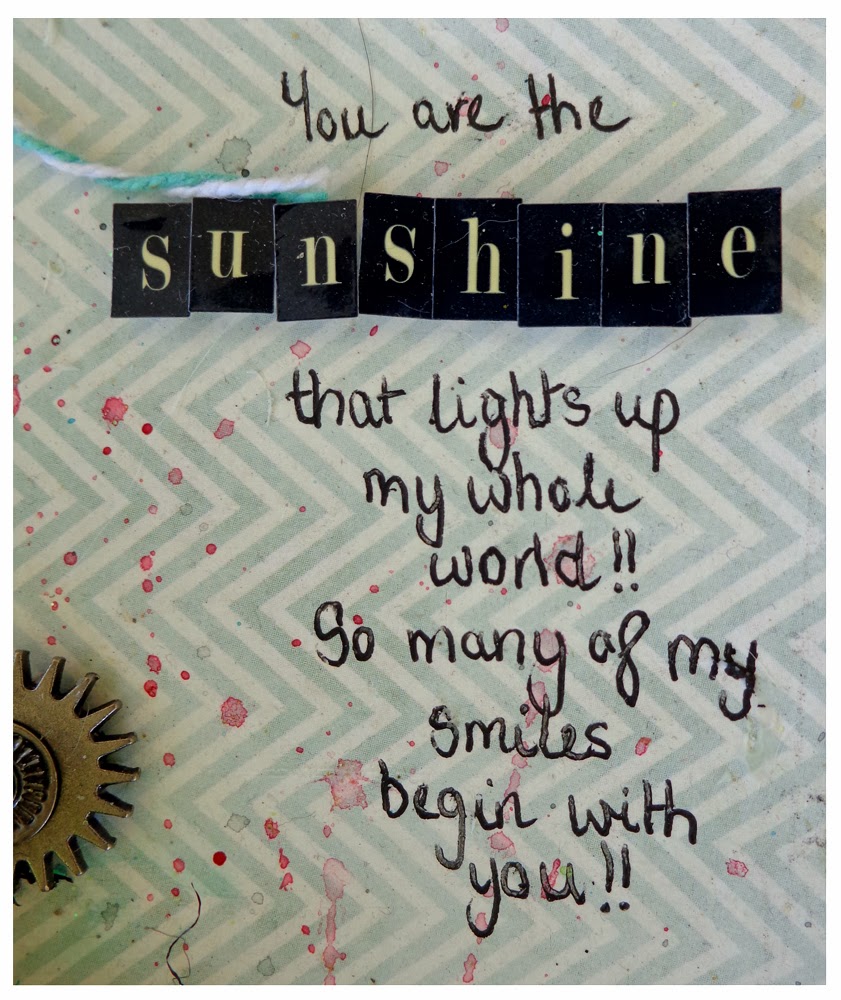 You are the
sunshine
that lights up
my whole
world!!
So many of my
smiles
begin with
you!!